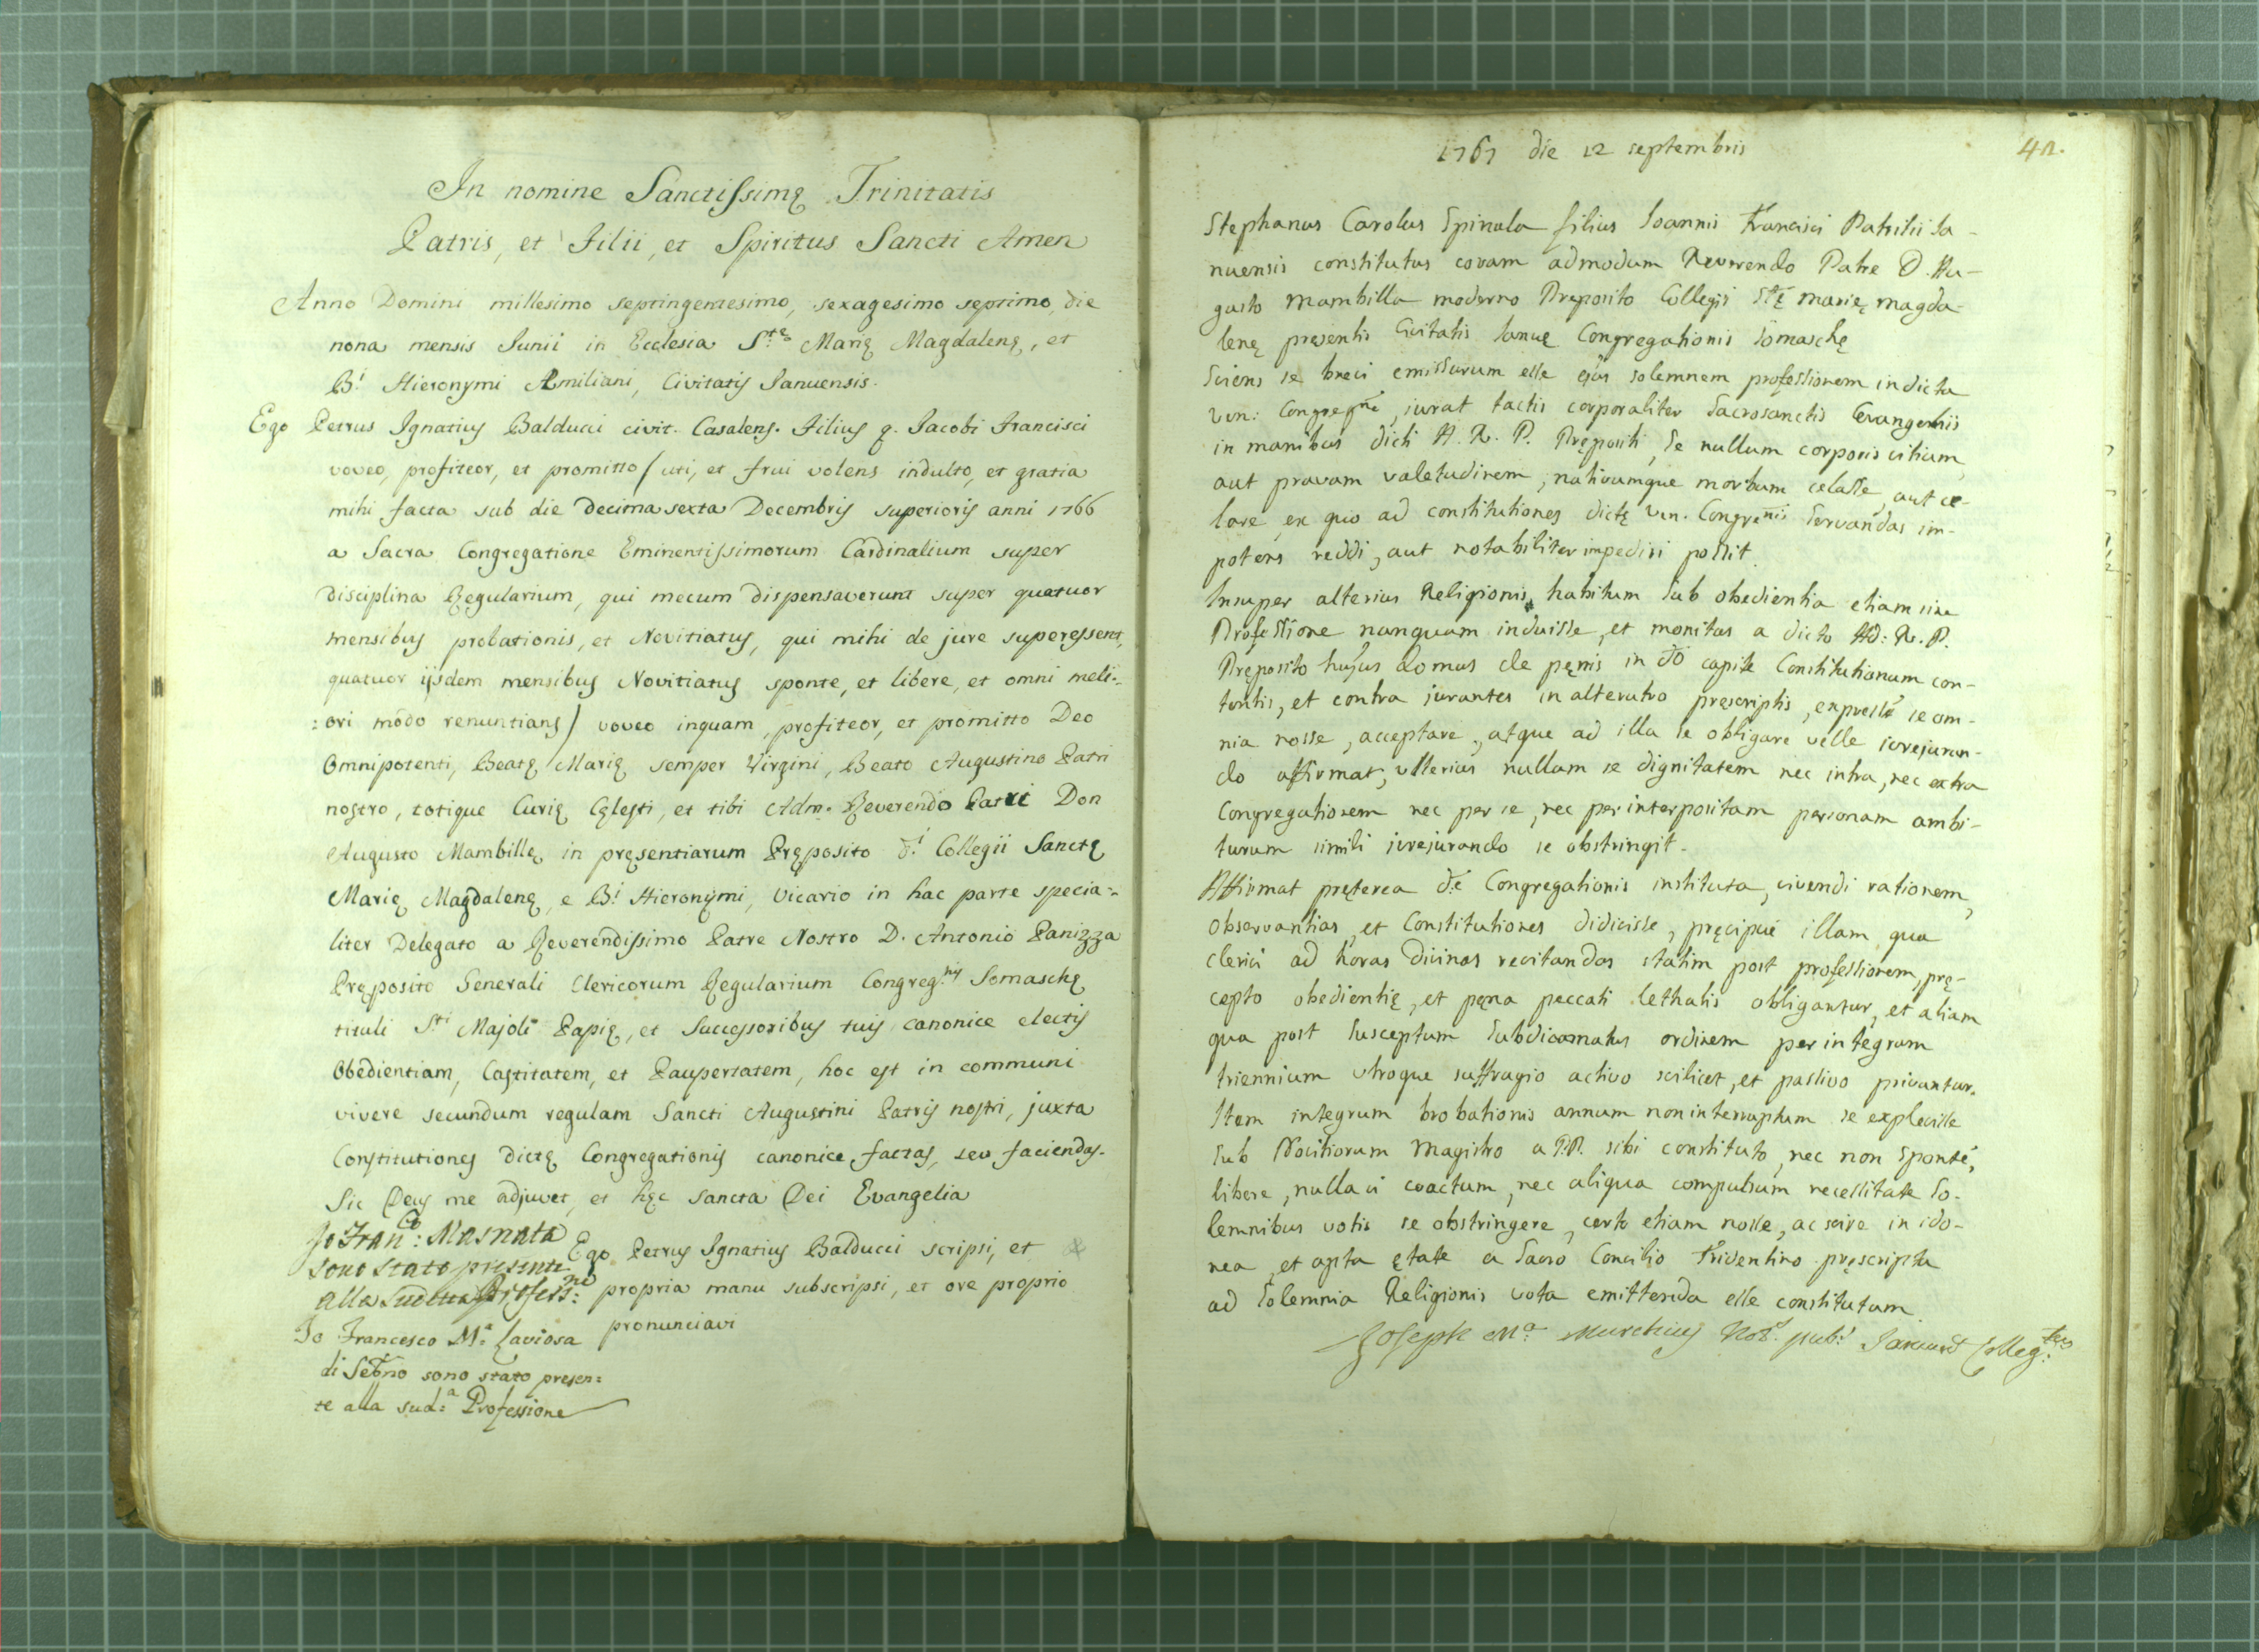 In nomine Sanctissimę Trinitatis
Patris, et Filii, et Spiritus Sancti Amen
Anno Domini millesimo septingentesimo, sexagesimo septimo, die
nona mensis Junii in Ecclesia S.tę Marię Magdalenę, et
B.i Hieronymi Æmiliani, Civitatis Januensis.
Ego Petrus Ignatius Balducci civit. Casalens. Filius q. Jacobi Francisci
voveo, profiteor, et promitto / uti, et frui volens indulto, et gratia
mihi facta sub die decima sexta Decembris superioris anni 1766
a Sacra Congregatione Eminentissimorum Cardinalium super
disciplina Regularium, qui mecum dispensaverunt super quatuor
mensibus probationis, et Novitiatus, qui mihi de jure superessent,
quatuor ijsdem mensibus Novitiatus sponte, et libere, et omni meli:
:ori modo renuntians / voveo inquam, profiteor, et promitto Deo
Omnipotenti, Beatę Marię semper Virgini, Beato Augustino Patri
nostro, totique Curię Cęlesti, et tibi Adm. Reverendo Patri Don
Augusto Mambillę in pręsentiarum Pręposito d.i Collegii Sanctę
Marię Magdalenę, e B.i Hieronymi, Vicario in hac parte specia:
liter Delegato a Reverendissimo Patre Nostro D. Antonio Panizza
Pręposito Generali Clericorum Regularium Congreg.nis Somaschę
tituli S.ti Majoli Papię, et Successoribus tuis canonice electis
Obedientiam, Castitatem, et Paupertatem, hoc est in communi
vivere secundum regulam Sancti Augustini Patris nostri, juxta
Constitutiones dictę Congregationis canonice factas, seu faciendas.
Sic Deus me adjuvet, et hęc sancta Dei Evangelia
Io Fran.co: Masnata
sono stato presente
alla Sudetta Profess.ne:
Ego Petrus Ignatius Balducci scripsi, et
propria manu subscripsi, et ore proprio
pronunciavi
Io Francesco M.a Laviosa
di sono stato presen:
te alla sud.a Professione
1767 die 12 septembris
42.
Stephanus Carolus Spinula filius Joannis Francisci Patritii Ja-
nuensis constitutus coram admodum Reverendo Patre D. Au-
gusto Mambilla moderno Pręposito Collegii Stę Marię Magda-
lenę presentis Civitatis Januę Congregationis Somaschę
Sciens se brevi emissurum esse ejus solemnem professionem in dicta
Ven: Congregne, jurat tactis corporaliter Sacrosanctis Evangeliis
in manibus dicti A. R. P. Prępositi, se nullum corporis vitium,
aut pravam valetudinem, nativumque morbum celasse, aut ce-
lare, ex quo ad constitutiones dictę Ven. Congrenis servandas im-
potens reddi, aut notabiliter impediri possit.
Insuper alterius Religionis habitum sub obedientia etiam sine
Professione nunquam induisse, et monitus a dicto Ad: R. P.
Pręposito hujus domus de pęnis in do capite Constitutionum con-
tentis, et contra jurantes in alterutro prescriptis, expresse se om-
nia nosse, acceptare, atque ad illa se obligare velle jurejuran-
do affirmat, ulterius nullam se dignitatem nec intra, nec extra
Congregationem nec per se, nec per interpositam personam ambi-
turum simili jurejurando se obstringit.
Affirmat pręterea d.ę Congregationis instituta, vivendi rationem,
observantias, et Constitutiones didicisse, pręcipuè illam qua
clerici ad horas divinas recitandas statim post professionem, prę-
cepto obedientię, et pęna peccati lethalis obligantur, et aliam
qua post susceptum Subdiaconatus ordinem per integrum
triennium utroque suffragio activo scilicet, et passivo privantur.
Item integrum probationis annum non interruptum se explevisse
sub Novitiorum Magistro a PP. sibi constituto, nec non sponté,
libere, nulla vi coactum, nec aliqua compulsum necessitate So-
lemnibus votis se obstringere, certo etiam nosse, ac scire in ido-
nea, et apta ętate a Sacro Concilio Tridentino pręscripta
ad Solemnia Religionis vota emittenda esse constitutum
Joseph M.a Murchius Not.s pub.s Colleg.